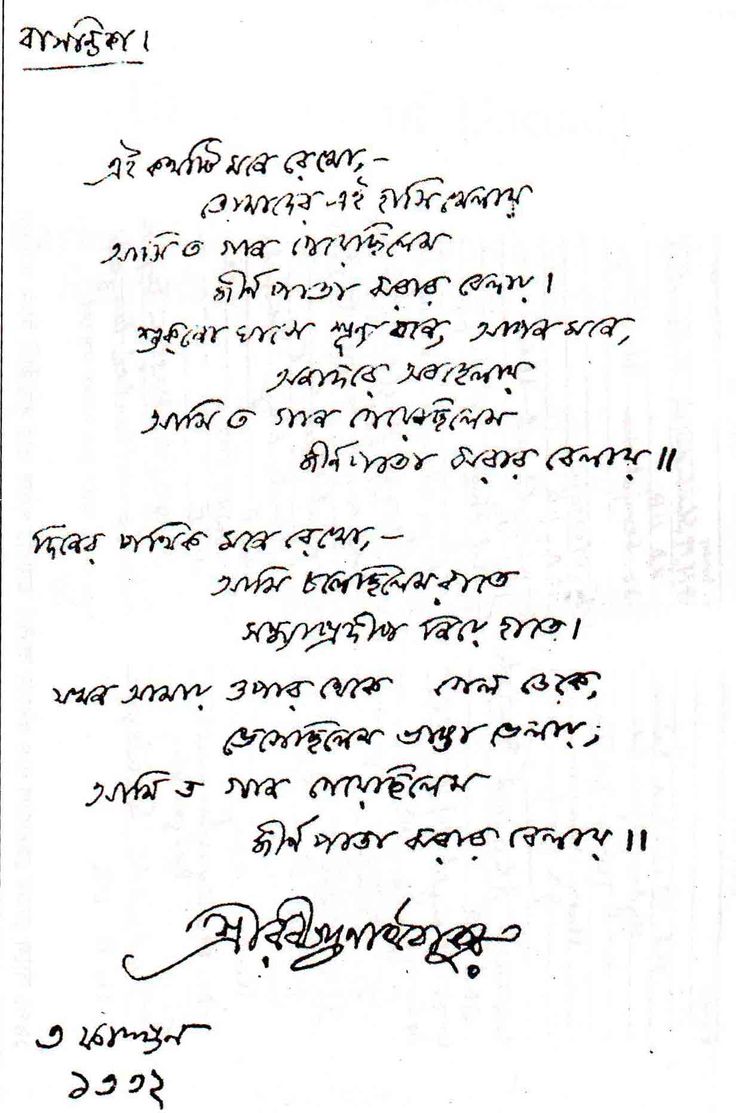 বাসন্তিকা।
এই কথাটি মনে রেখো,–
তোমাদের এই হাসি খেলায়
আমি ত গান গেয়েছিলেম
জীর্ণ পাতা ঝরার বেলায়।
শুক্‌নো ঘাসে শূন্য বনে, আপন মনে,
অনাদরে অবহেলায়
আমি ত গান গেয়েছিলেম
জীর্ণ পাতা ঝরার বেলায়॥
দিনের পথিক মনে রেখো,–
আমি চলেছিলেম রাতে
সন্ধ্যাপ্রদীপ নিয়ে হাতে।
যখন আমায় ওপার থেকে গেল ডেকে,
ভেসেছিলেম ভাঙা ভেলায়;
আমি ত গান গেয়েছিলেম
জীর্ণ পাতা ঝরার বেলায়॥
শ্রীরবীন্দ্রনাথ ঠাকুর
৩ ফাল্গুন
১৩৩২